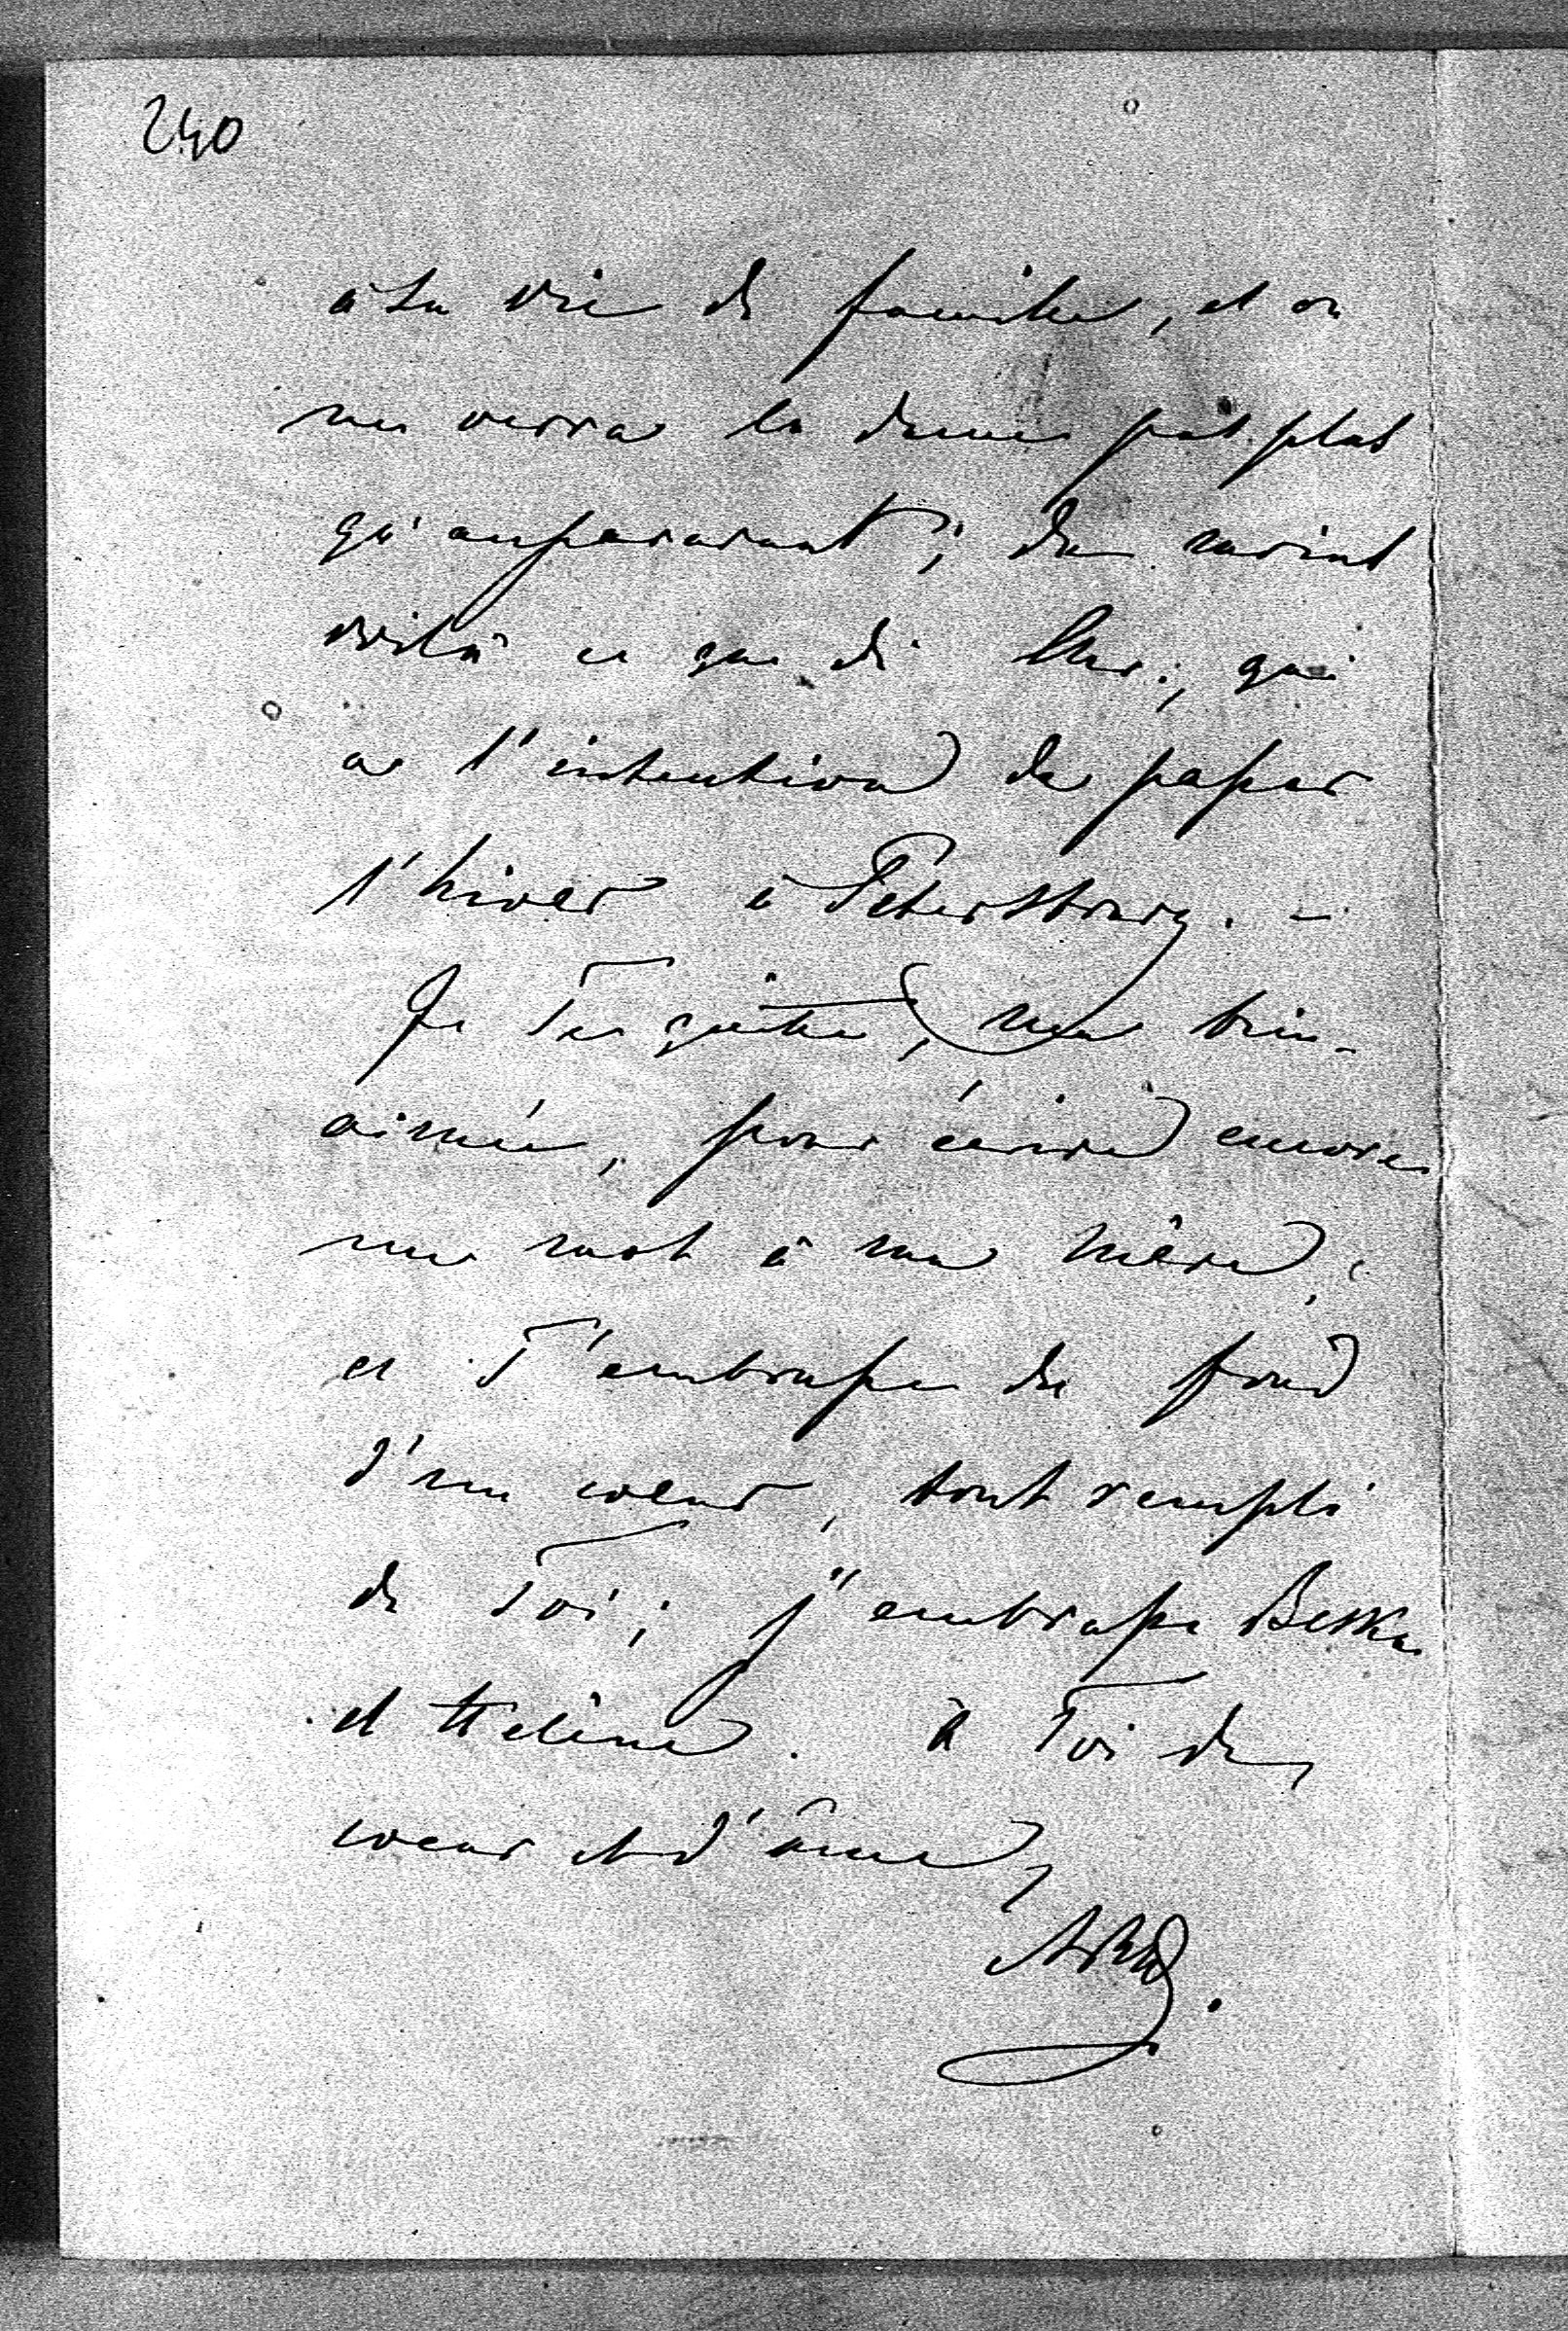 240
à la vie de famille, et on
ne verra la dame pas plus
qu'auparavant; du moins
voilà ce que di Chr., qui
a l'intention de passer
l'hiver à Petersbourg. —
Je Te quitte, ma bien-
aimée, pour écrire encore
un mot à ma mère,
et T'embrasse du fond
d'un coeur, tout rempli
de Toi; j'embrasse
et Helène. à Toi de
coeur et d'âme,